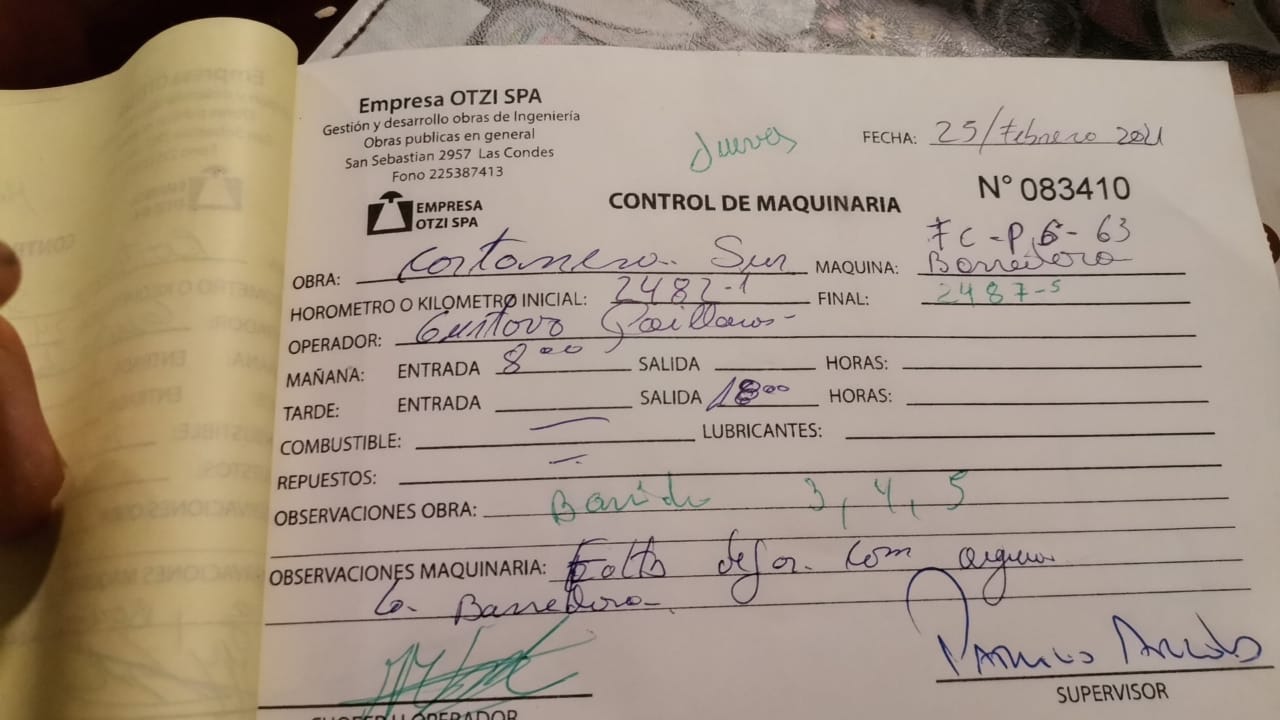 Empresa OTZI SPA
Gestión y desarrollo obras de Ingeniería
Obras publicas en general
San Sebastian 2957 Las Condes
Fono 225387413
EMPRESA
OTZI SPA
Jueves
FECHA: 25/Febrero 2021
N° 083410
CONTROL DE MAQUINARIA
FC-P 6-63
OBRA: Costanera Sur MAQUINA: Barredora
HOROMETRO O KILOMETRO INICIAL: 2482-1 FINAL: 2487-5
OPERADOR: Gustavo
MAÑANA: ENTRADA 8 00 SALIDA HORAS:
TARDE: ENTRADA SALIDA 18 00 HORAS:
COMBUSTIBLE: — LUBRICANTES:
REPUESTOS: —
OBSERVACIONES OBRA: Barrido 3, 4, 5
OBSERVACIONES MAQUINARIA: Falta
la Barredora
CHOFER U OPERADOR
SUPERVISOR